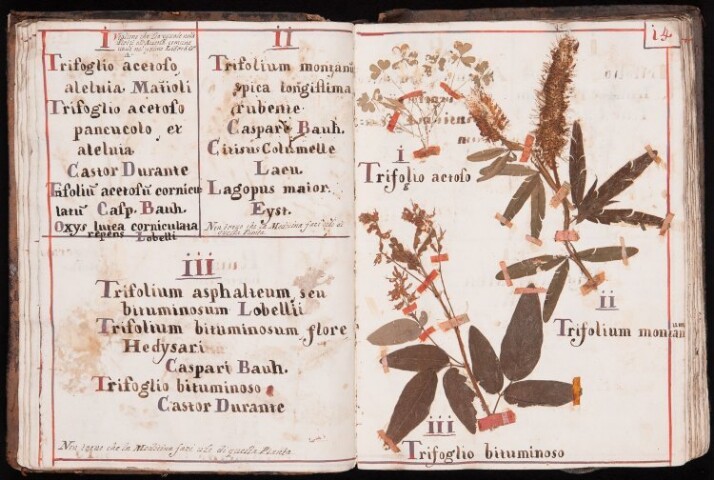 i
Trifoglio acetoso
aleluia Matioli
Trifoglio acetoso
pancucolo ex
aleluia
Castor Durante
Trifoliū acetosū cornicu
latū Casp. Bauh.
Oxys lutea corniculata
repens Lobelli
ii
Trifolium montanū
spica longissima
rubente
Caspari Bauh.
Citisus Columelle
Lacu.
Lagopus maior
Eyst.
Non trovo che la Medicina faci uso di
questa Pianta
iii
Trifolium asphalteum seu
bituminosum Lobellii
Trifolium bituminosum flore
Hedysari
Caspari Bauh.
Trifoglio bituminoso
Castor Durante
Non trovo che la Medicina faci uso di questa Pianta
14
i
Trifolio actoso
ii
Trifolium montanum
iii
Trifoglio bituminoso